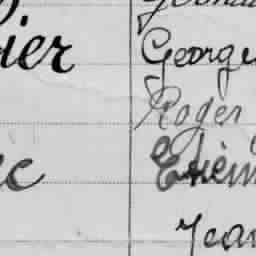 ier Georg
Roger
ec Etien
Jean